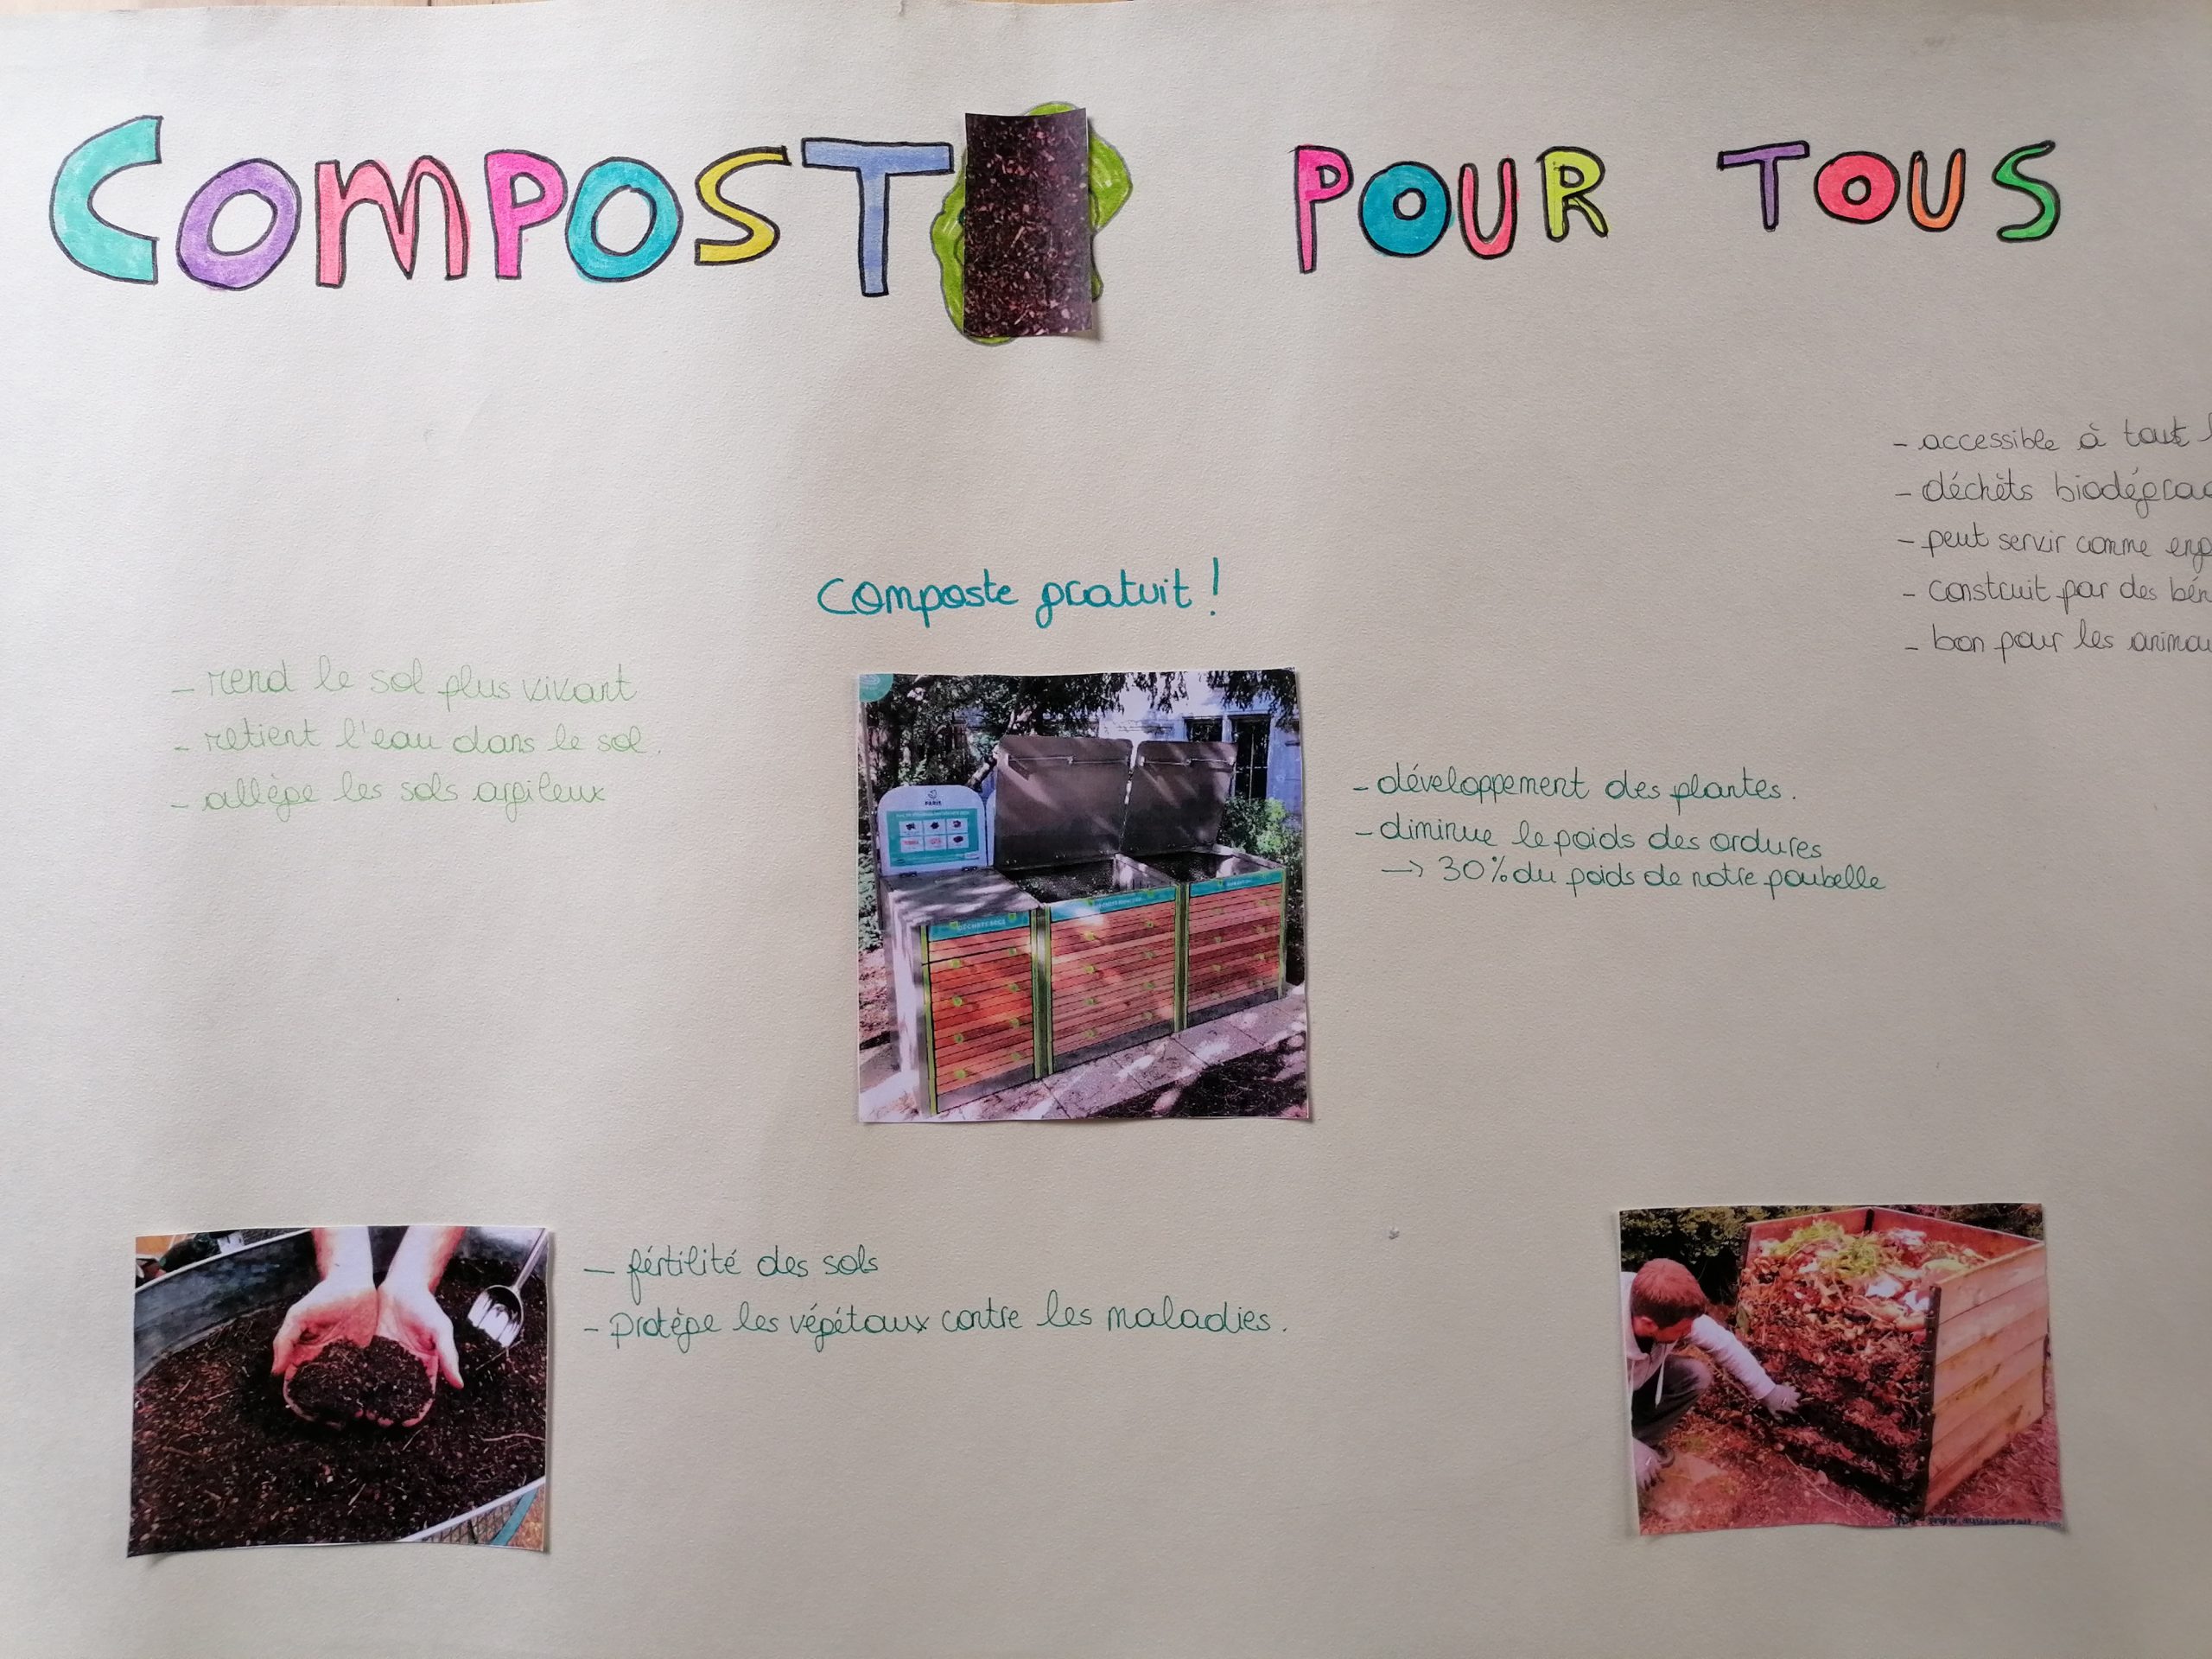 COMPOST POUR TOUS
- accessible à tout
- déchèts
- peut servir comme
- construit par des
- bon pour les
Composte gratuit !
- rend le sol plus vivant
- retient l'eau dans le sol.
- allège les sols argileux
PARIS
- développement des plantes.
- diminue le poids des ordures
→ 30% du poids de notre poubelle
- fértilité des sols
- protège les végétaux contre les maladies.